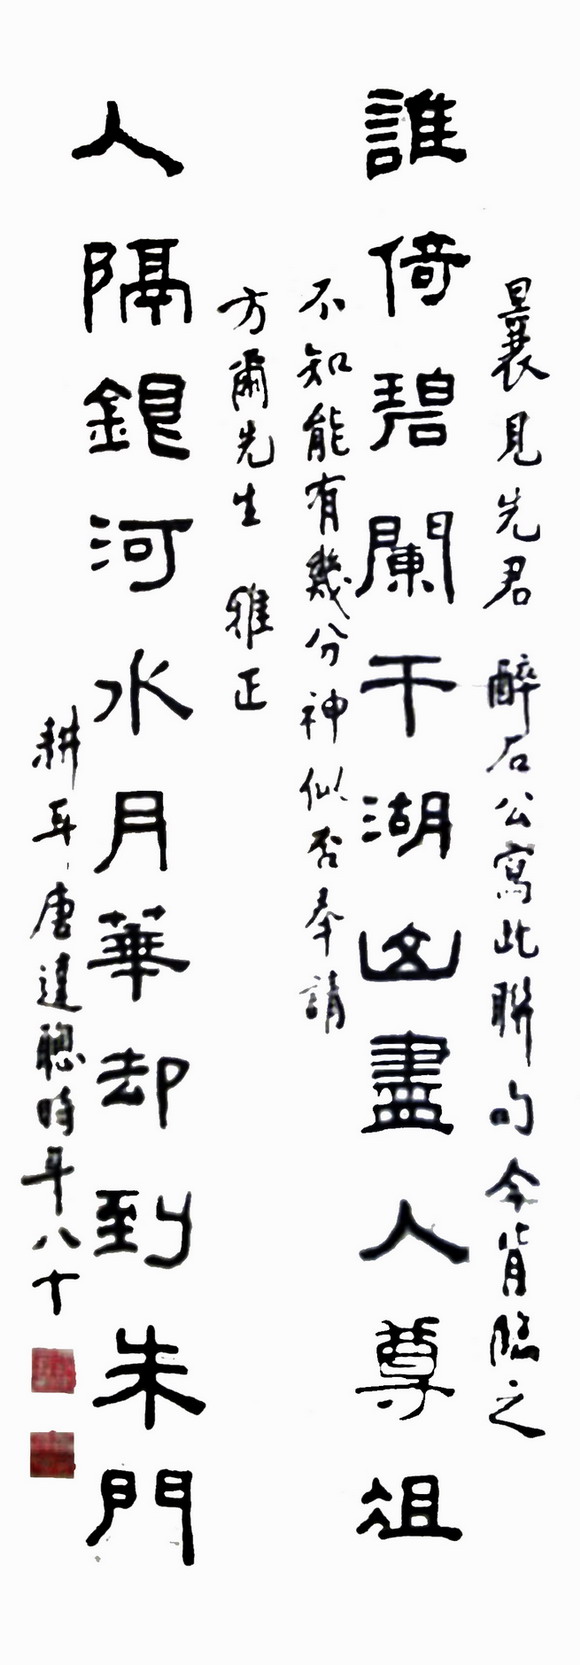 曩見先君 醉石公寫此聯句今背臨之
誰倚碧闌干湖山盡入尊俎
不知能有幾分神似否奉請
方爾先生 雅正
人隔銀河水月華却到朱門
耕耳唐達聰時年八十